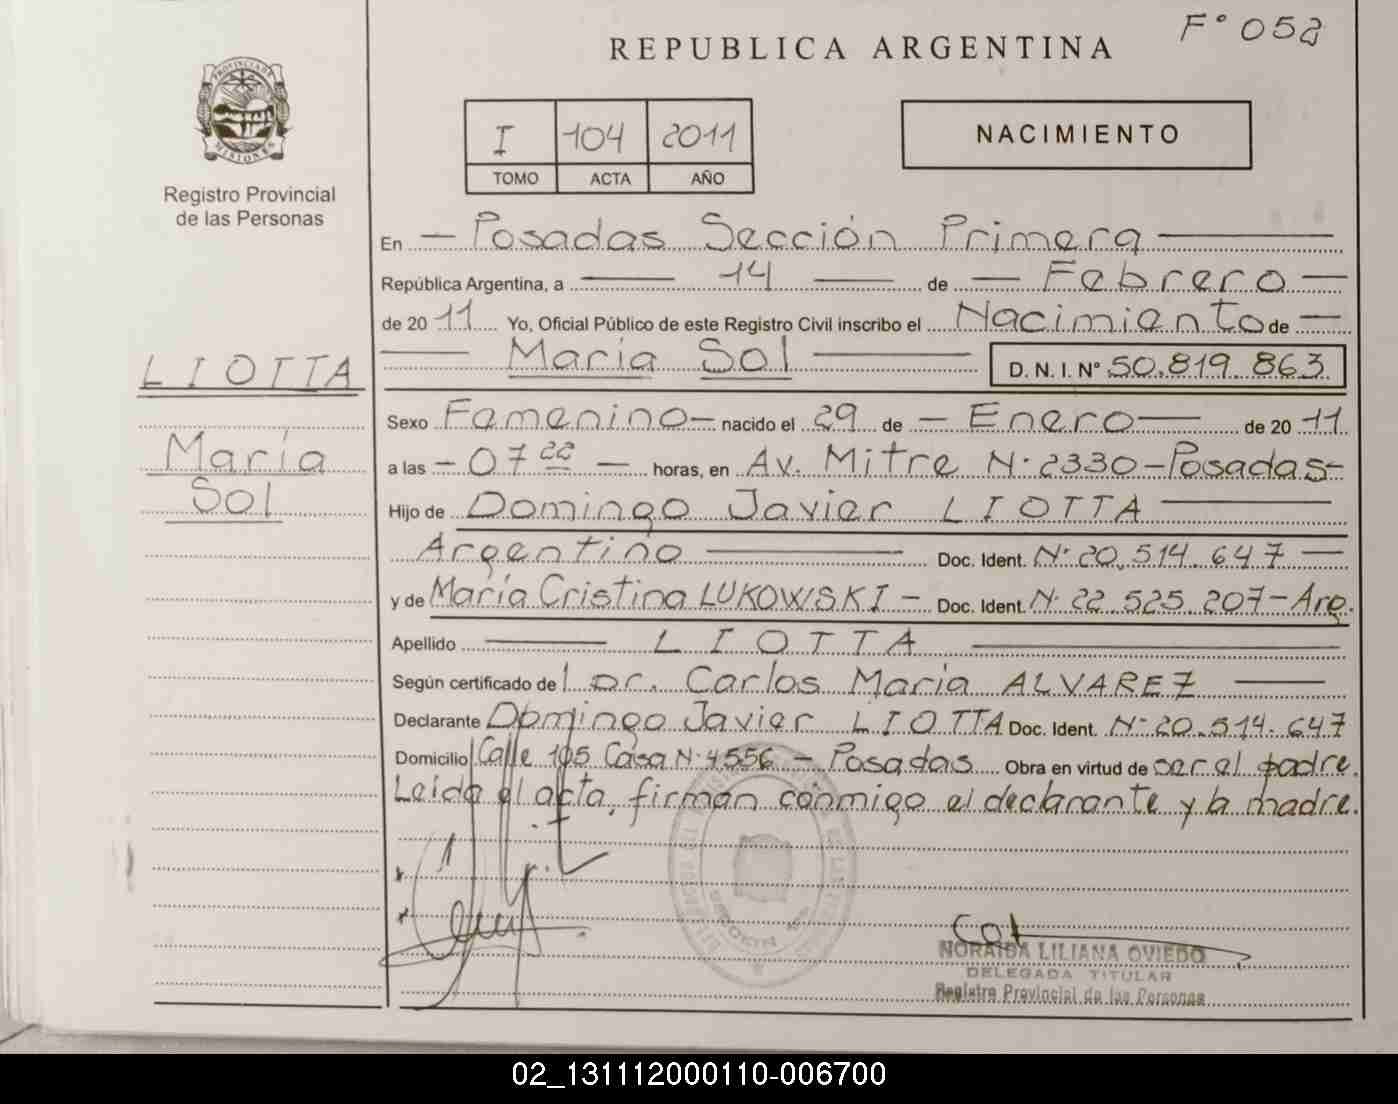 REPUBLICA ARGENTINA
F° 052
PROVINCIA DE MISIONES
Registro Provincial
de las Personas
I 104 2011
TOMO ACTA AÑO
NACIMIENTO
En — Posadas Sección Primera —
República Argentina, a — 14 — de — Febrero —
de 20 11 Yo, Oficial Público de este Registro Civil inscribo el Nacimiento de —
— María Sol — D. N. I. N° 50.819.863
LIOTTA
María
Sol
Sexo Femenino — nacido el 29 de — Enero — de 20 11
a las — 07 22 — horas, en Av. Mitre N° 2330 - Posadas -
Hijo de Domingo Javier LIOTTA —
Argentino — Doc. Ident. N° 20.514.647 —
y de María Cristina LUKOWSKI — Doc. Ident. N° 22.525.207 - Arg.
Apellido — LIOTTA —
Según certificado del Dr. Carlos María ALVAREZ —
Declarante Domingo Javier LIOTTA Doc. Ident. N° 20.514.647
Domicilio Calle 105 Casa N° 4556 - Posadas Obra en virtud de ser el padre.
Leída el acta, firman conmigo el declarante y la madre.
NORAIDA LILIANA OVIEDO
DELEGADA TITULAR
Registro Provincial de las Personas
02_131112000110-006700